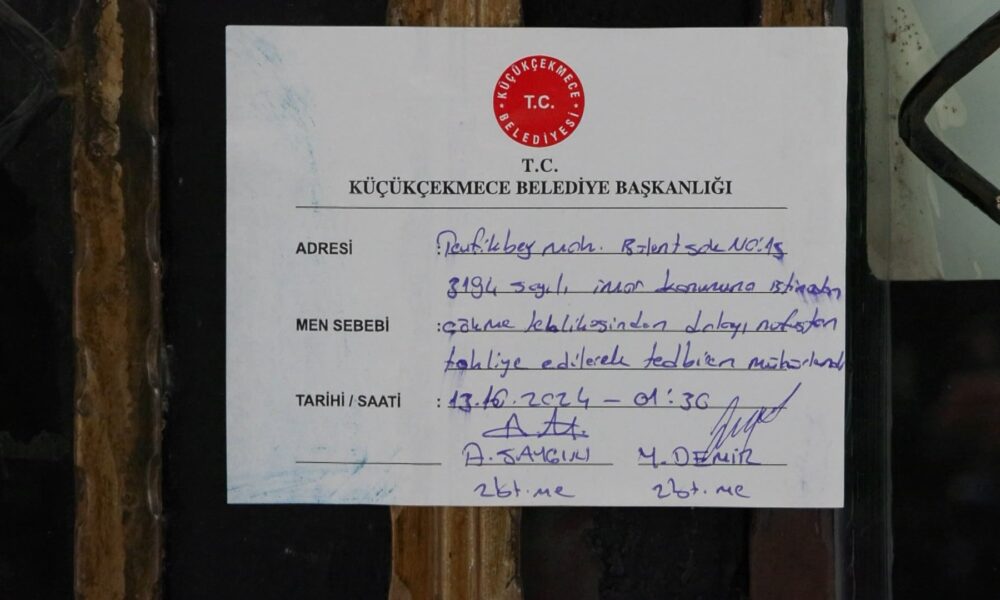 KÜÇÜKÇEKMECE
T.C.
BELEDİYESİ
T.C.
KÜÇÜKÇEKMECE BELEDİYE BAŞKANLIĞI
ADRESİ : Tevfikbey Mah. Bülent sok No:15
3194 sayılı imar kanununa istinaden
MEN SEBEBİ : çökme tehlikesinden dolayı nufustan
tahliye edilerek tedbiren mühürlendi
TARİHİ / SAATİ : 13.10.2024 - 01:30
A. SAYGIN M. DEMİR
zbt. me zbt. me